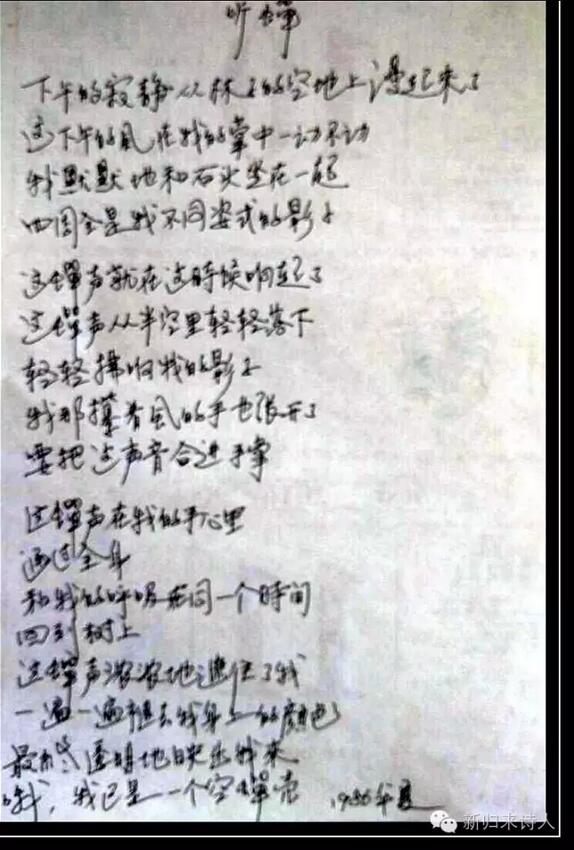 听蝉
下午的寂静从林子的空地上漫起来了
这下午的风在我的掌中一动不动
我默默地和石头坐在一起
四周全是我不同姿式的影子
这蝉声就在这时候响起了
这蝉声从半空里轻轻落下
轻轻拂响我的影子
我那攥着风的手也张开了
要把这声音合进手掌
这蝉声在我的手心里
通过全身
和我的呼吸在同一个时间
回到树上
这蝉声浓浓地遮住了我
一遍一遍褪去我身上的颜色
最后透明地映出我来
哦,我已是一个空蝉壳
1986年夏
新归来诗人